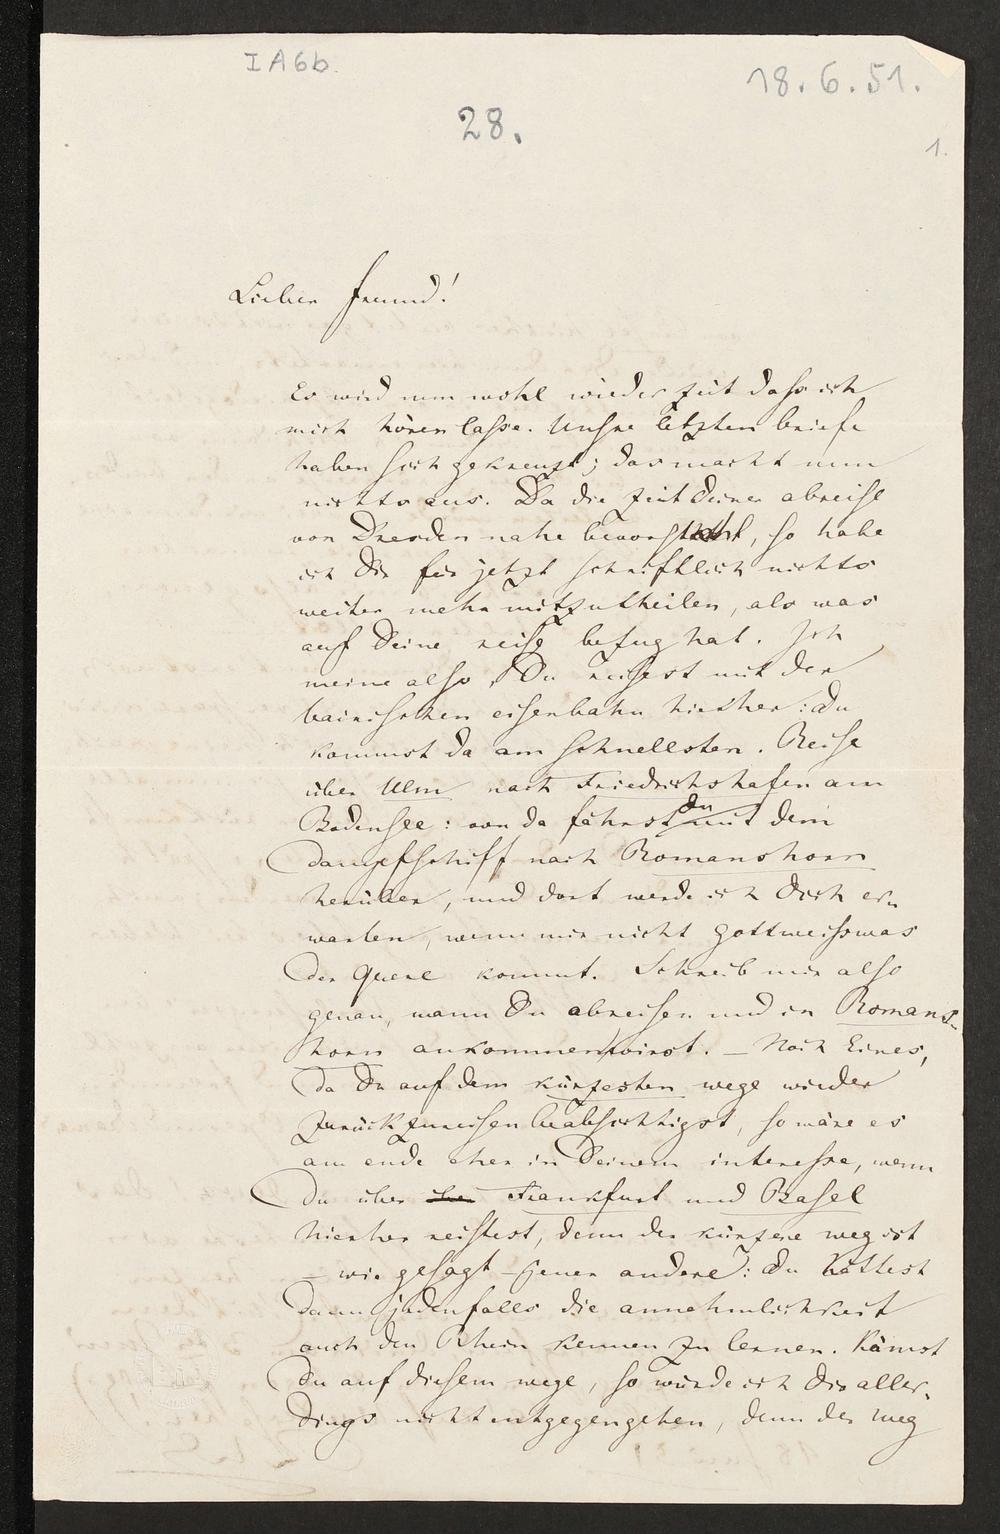 I A 6 b
18. 6. 51.
28.
1.
Lieber freund!
Es wird nun wohl wieder zeit dass ich
mich hören lasse. Unsre letzten briefe
haben sich gekreuzt; das macht nun
nichts aus. Da die zeit Deiner abreise
von Dresden nahe bevorsteht, so habe
ich Dir für jetzt schriftlich nichts
weiter mehr mitzutheilen, als was
auf Deine reise bezug hat. Ich
meine also, Du reisest mit der
bairischen eisenbahn hierher: du
kommst da am schnellsten. Reise
über Ulm nach Friedrichshafen am
Bodensee: von da fährst du mit dem
dampfschiff nach Romanshorn
herüber, und dort werde ich dich er-
warten, wenn mir nicht gottweisswas
der quere kommt. Schreib mir also
genau, wann Du abreisen und in Romans-
horn ankommen wirst. — Noch Eines,
da Du auf dem kürzesten wege wieder
zurückzureisen beabsichtigst, so wäre es
am ende eher in Deinem interesse, wenn
Du über Frankfurt und Basel
hierher reistest, denn der kürzere weg ist
— wie gesagt — jener andere: du hättest
dann jedenfalls die annehmlichkeit
auch den Rhein kennen zu lernen. Kämst
Du auf diesem wege, so würde ich dir aller-
dings nicht entgegengehen, denn der weg